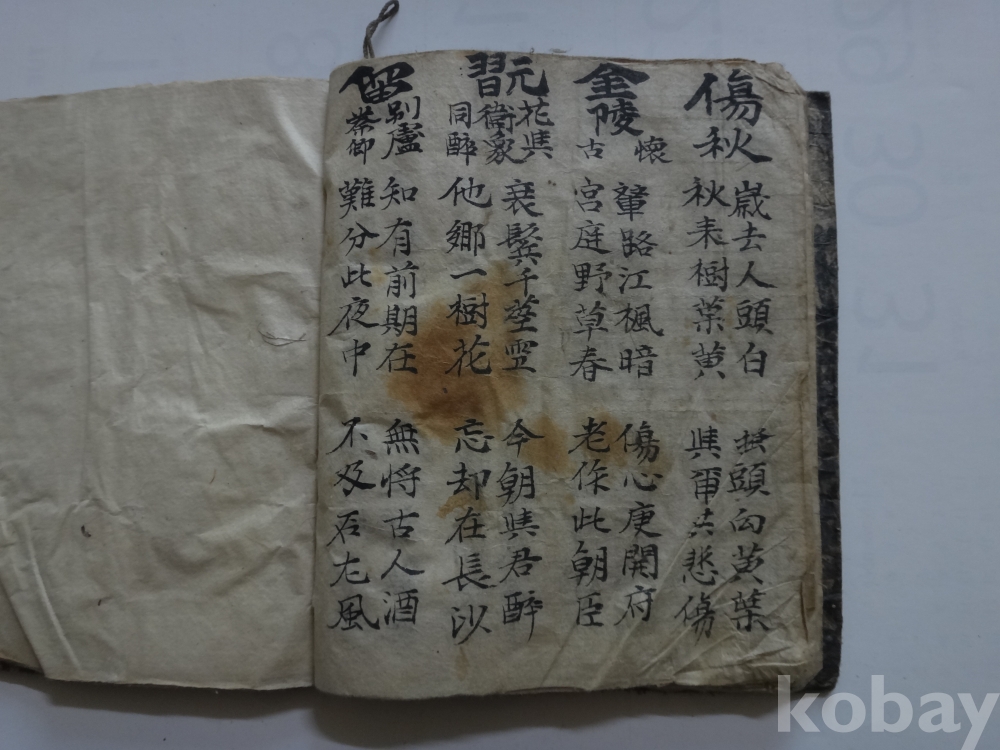 傷秋
歲去人頭白
秋来樹葉黃
搔頭向黃葉
與爾共悲傷
金陵懷古
輦路江楓暗
宮庭野草春
傷心庾開府
老作此朝臣
花與衛象同醉
衰鬢千莖雪
他鄉一樹花
今朝與君醉
忘却在長沙
留別盧
知有前期在
難分此夜中
無將古人酒
不及石尤風
kobay